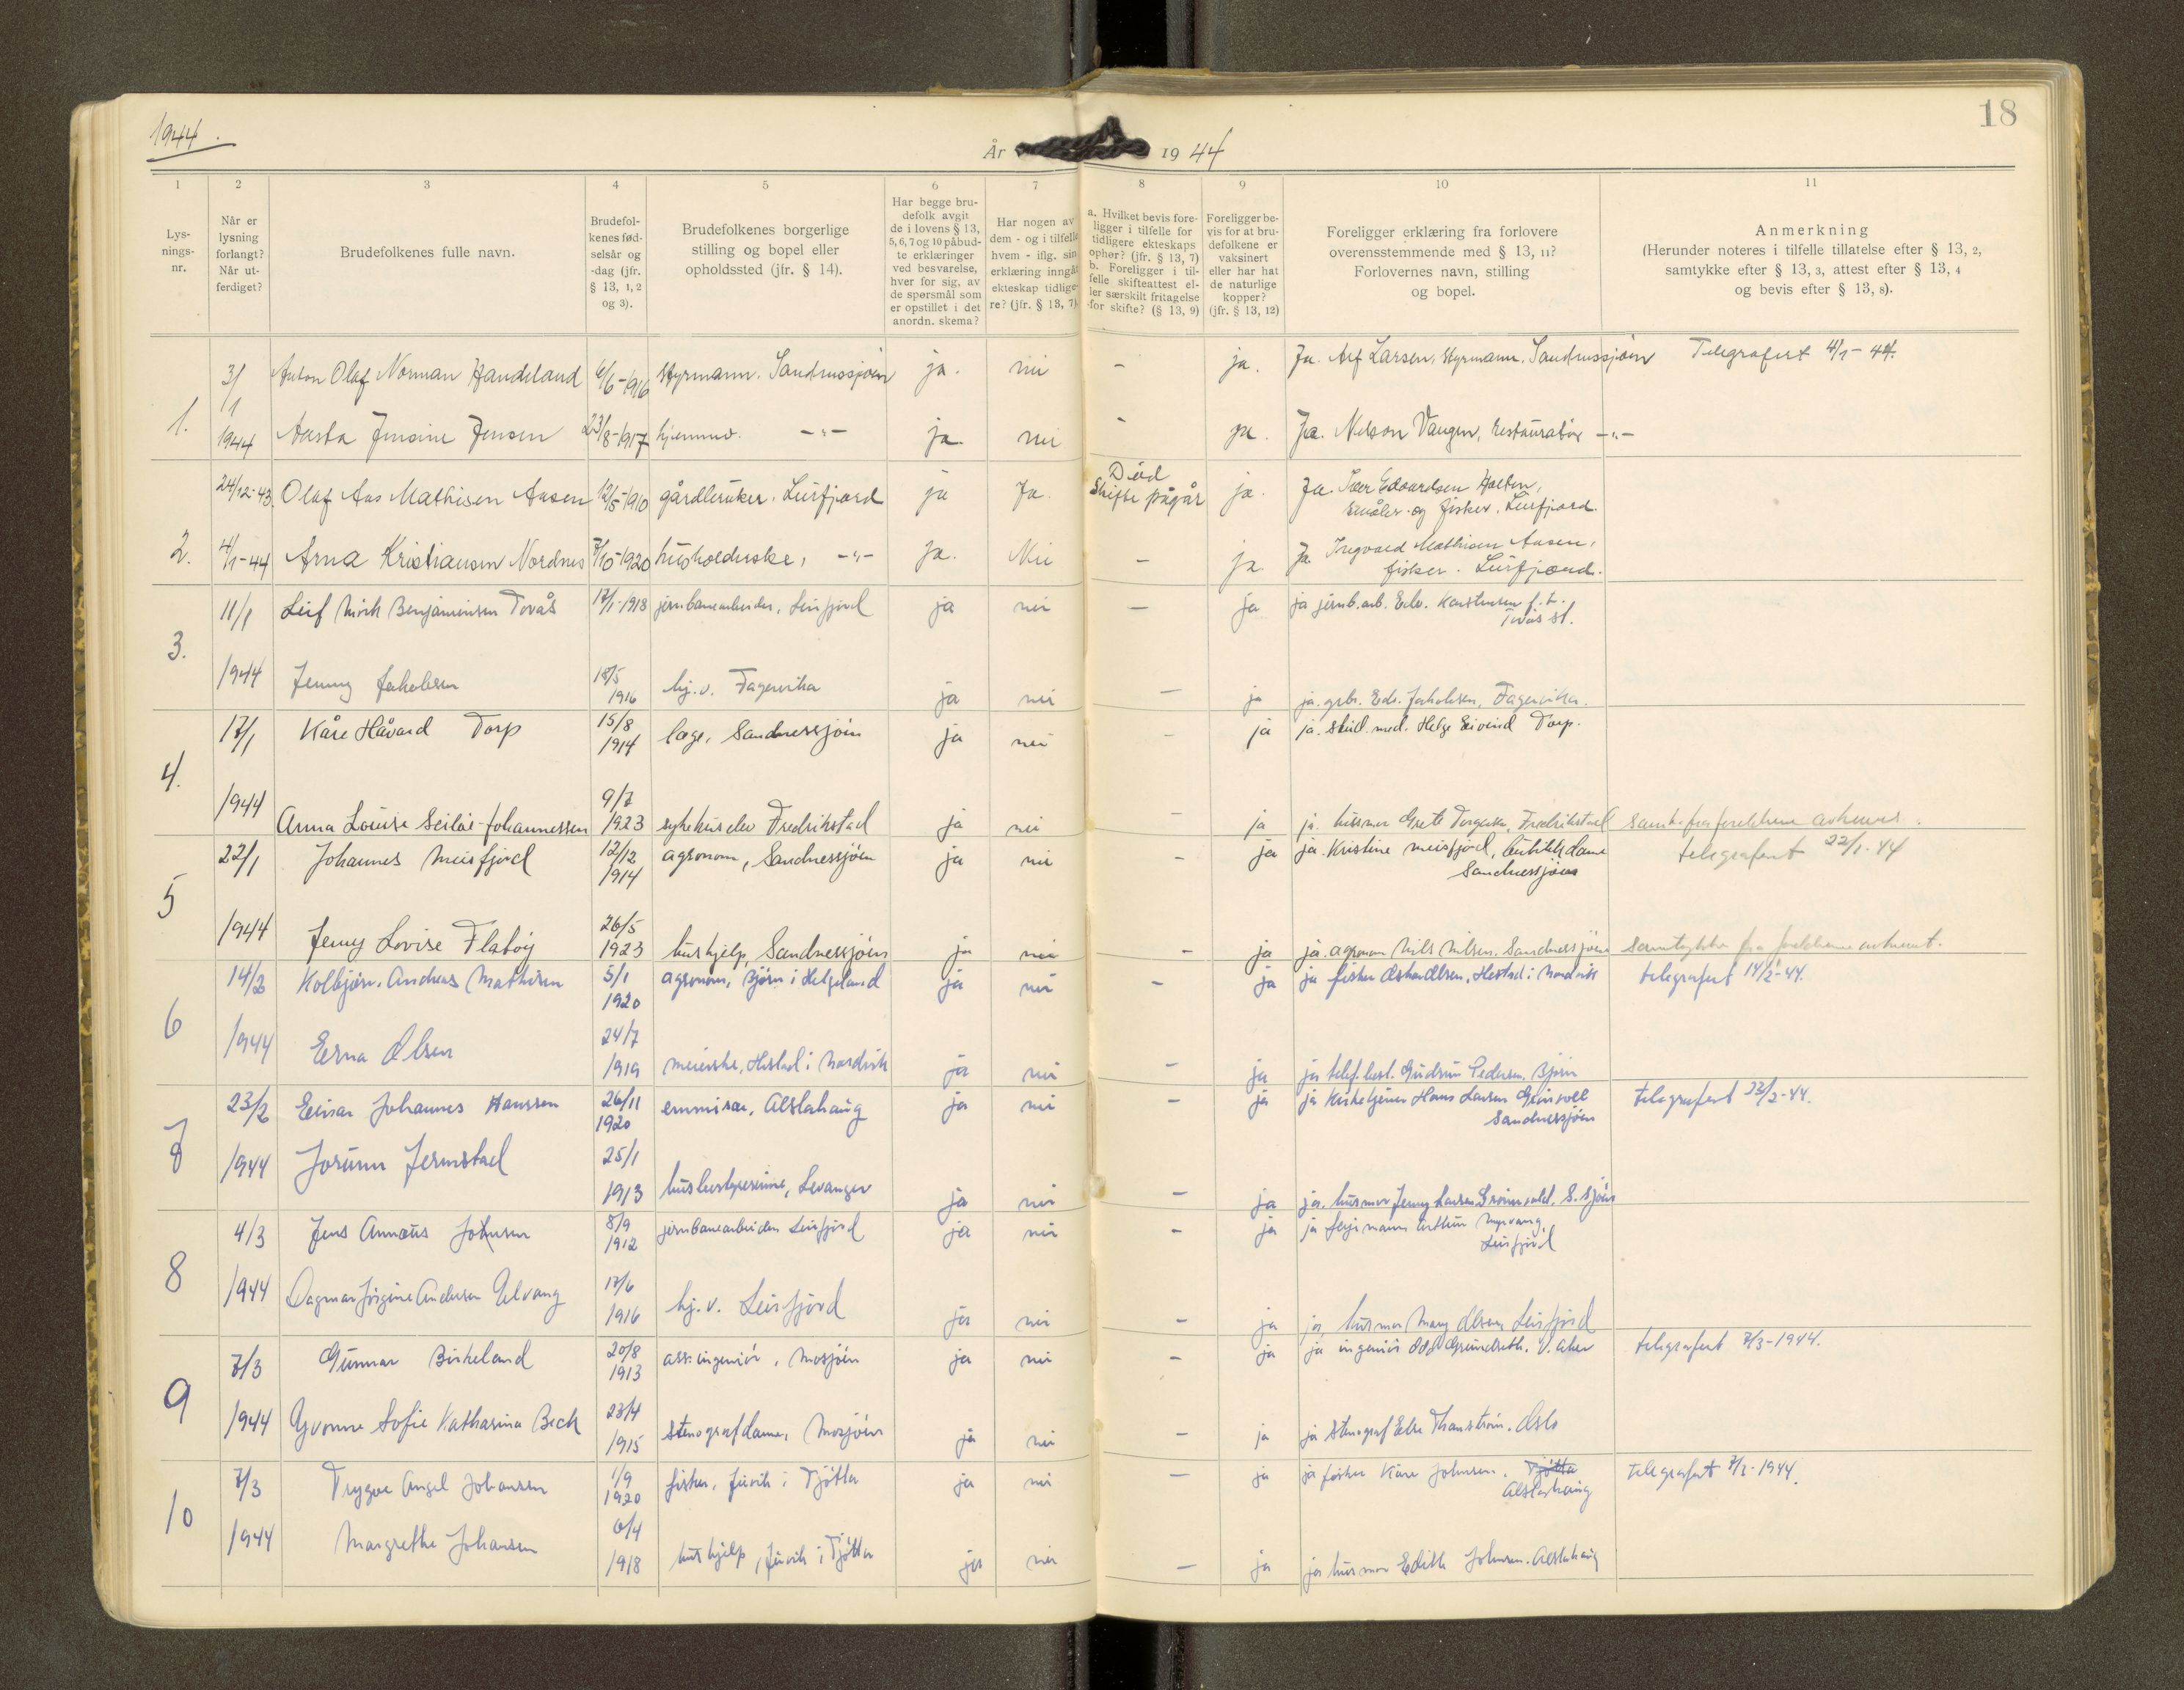 1944.
År 1944
18
1 2 3 4 5 6 7 8 9 10 11
Lys-
nings-
nr.
Når er
lysning
forlangt?
Når ut-
ferdiget?
Brudefolkenes fulle navn.
Brudefol-
kenes fød-
selsår og
-dag (jfr.
§ 13, 1, 2
og 3).
Brudefolkenes borgerlige
stilling og bopel eller
opholdssted (jfr. § 14).
Har begge bru-
defolk avgit
de i lovens § 13,
5, 6, 7 og 10 påbud-
te erklæringer
ved besvarelse,
hver for sig, av
de spørsmål som
er opstillet i det
anordn. skema?
Har nogen av
dem - og i tilfelle
hvem - iflg. sin
erklæring inngåt
ekteskap tidlige-
re? (jfr. § 13, 7)
a. Hvilket bevis fore-
ligger i tilfelle for
tidligere ekteskaps
ophør? (jfr. § 13, 7)
b. Foreligger i til-
felle skifteattest el-
ler særskilt fritagelse
for skifte? (§ 13, 9)
Foreligger be-
vis for at bru-
defolkene er
vaksinert
eller har hat
de naturlige
kopper?
(jfr. § 13, 12)
Foreligger erklæring fra forlovere
overensstemmende med § 13, 11?
Forlovernes navn, stilling
og bopel.
Anmerkning
(Herunder noteres i tilfelle tillatelse efter § 13, 2,
samtykke efter § 13, 3, attest efter § 13, 4
og bevis efter § 13, 8).
3/1 Anton Olaf Norman Handeland 6/6-1916 Styrmann. Sandnessjøen ja. nei - ja. Ja. Larsen, Styrmann. Sandnessjøen Telegrafert 4/1-44.
1. 1944 Aasta Jensine Jensen 23/8-1917 hjemmev. -"- ja. nei - ja. Ja. Nelson Vangen, restauratør -"-
24/12-43. Olaf Aas Mathisen Aasen 12/5-1910 gårdbruker. Leirfjord ja Ja. Død
Skifte pågår ja. Ja. Edvardsen
og fisker. Leirfjord.
2. 4/1-44 Arna Kristiansen Nordnes 7/10-1920 husholderske, -"- Ja. Nei - ja. Ja. Ingvard Mathisen Aasen,
fisker. Leirfjord.
3. 11/1 Leif Mörk Benjaminsen Tovås 17/1-1918 jernbanearbeider, Leirfjord ja nei - ja ja jernb.arb. Edv. Karstensen
1944 Jenny Jakobsen 18/5
1916 hj. v. Fagervika ja nei - ja ja. grbr. Edv. Jakobsen, Fagervika.
4. 17/1 Kåre Håvard Torp 15/8
1914 læge, Sandnessjøen ja nei - ja ja. stud. med. Helge Eivind Torp.
1944 Anna Louise Johannessen 9/7
1923 sykehuselev Fredrikstad ja nei - ja ja. husmor Grete Torgersen, Fredrikstad
5 22/1 Johannes Meisfjord 12/12
1914 agronom, Sandnessjøen ja nei - ja ja. Kristine Meisfjord, butikkdame
Sandnessjøen telegrafert 22/1-44
1944 Jenny Lovise Flatøy 26/5
1923 hushjelp, Sandnessjøen ja nei - ja ja. agronom Nils Nilsen. Sandnessjøen Samtykke fra foreldrene avkrevet.
6 14/2 Kolbjørn Andreas Mathisen 5/1
1920 agronom, Bjørn i Helgeland ja nei - ja ja fisker Olsen, Hestad i Nordvik telegrafert 14/2-44.
1944 Erna Olsen 24/7
1919 meierske, Hestad i Nordvik ja nei - ja ja telef.best. Gudrun Pedersen. Bjørn
7 23/2 Einar Johannes Hanssen 26/11
1920 emmisær, Alstahaug ja nei - ja ja kirketjener Hans Larsen
Sandnessjøen telegrafert 23/2-44.
1944 Jorunn Jermstad 25/1
1913 husbestyrerinne, Levanger ja nei - ja ja. husmor Jenny Larsen S.sjøen
8 4/3 Jens Annæus Johnsen 8/9
1912 jernbanearbeider Leirfjord ja nei - ja ja fergemann
Leirfjord
1944 Dagmar Jørgine Andersen Ulvang 17/6
1916 hj. v. Leirfjord ja nei - ja ja husmor Mary Olsen, Leirfjord
9 7/3 Gunnar Birkeland 20/8
1913 ass. ingeniør, Mosjøen ja nei - ja ja ingeniør Odd Grundseth. V. Aker telegrafert 7/3-1944.
1944 Yvonne Sofie Katharina Beck 23/4
1915 Stenografdame, Mosjøen ja nei - ja ja stenograf Else Thanstrøm. Oslo
10 7/3 Trygve Angel Johansen 1/9
1920 fisker, i Tjøtta ja nei - ja ja fisker Kåre Johnsen. Tjøtta
Alstahaug telegrafert 7/3-1944.
1944 Margrethe Johansen 6/4
1918 hushjelp, i Tjøtta ja nei - ja ja husmor Edith Johnsen. Alstahaug